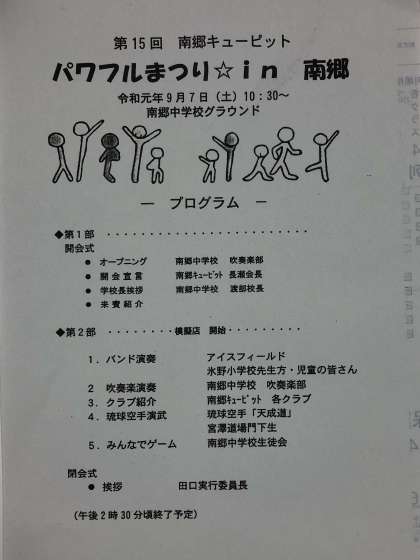 第15回 南郷キューピット
パワフルまつり☆in 南郷
令和元年9月7日(土)10:30~
南郷中学校グラウンド
― プログラム ―
◆第1部 ・・・・・・・・・・・・・・・・・・・・・・・・
開会式
● オープニング 南郷中学校 吹奏楽部
● 開会宣言 南郷キューピット 長瀬会長
● 学校長挨拶 南郷中学校 渡部校長
● 来賓紹介
◆第2部 ・・・・・・・・模擬店 開始・・・・・・・・・
1.バンド演奏 アイスフィールド
氷野小学校先生方・児童の皆さん
2 吹奏楽演奏 南郷中学校 吹奏楽部
3.クラブ紹介 南郷キューピット 各クラブ
4.琉球空手演武 琉球空手「天成道」
宮澤道場門下生
5.みんなでゲーム 南郷中学校生徒会
閉会式
● 挨拶 田口実行委員長
(午後2時30分頃終了予定)